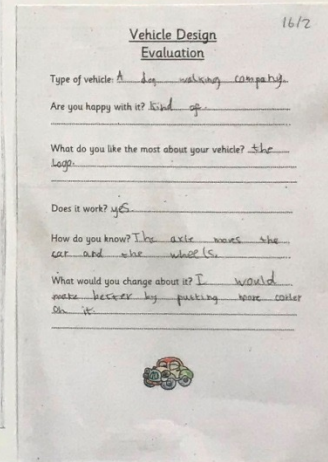 16/2
Vehicle Design
Evaluation
Type of vehicle: A dog walking company.
Are you happy with it? kind of.
What do you like the most about your vehicle? the
Logo.
Does it work? yes.
How do you know? The axle moves the
car and the wheels.
What would you change about it? I would
make better by putting more coller
on it.